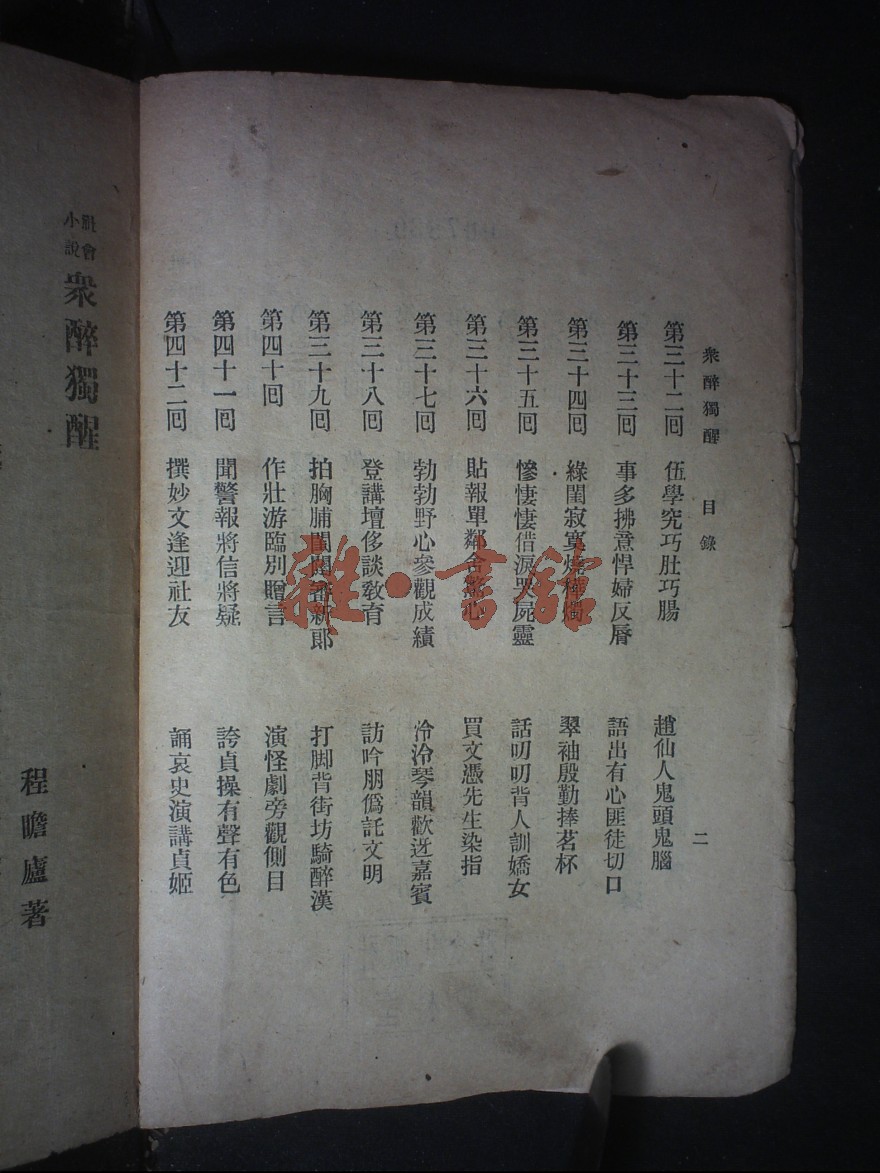 衆醉獨醒 目錄 二
第三十二回 伍學究巧肚巧腸 趙仙人鬼頭鬼腦
第三十三回 事多拂意悍婦反脣 語出有心匪徒切口
第三十四回 綠閨寂寞燒樺燭 翠袖殷勤捧茗杯
第三十五回 慘悽悽借淚哭屍靈 話叨叨背人訓嬌女
第三十六回 貼報單鄰舍驚心 買文憑先生染指
第三十七回 勃勃野心參觀成績 泠泠琴韻歡迓嘉賓
第三十八回 登講壇侈談敎育 訪吟朋僞託文明
第三十九回 拍胸脯閨闥新郞 打脚背街坊騎醉漢
第四十回 作壯游臨別贈言 演怪劇旁觀側目
第四十一回 聞警報將信將疑 誇貞操有聲有色
第四十二回 撰妙文逢迎社友 誦哀史演講貞姬
社會小說 衆醉獨醒
程瞻廬著
雜·書館